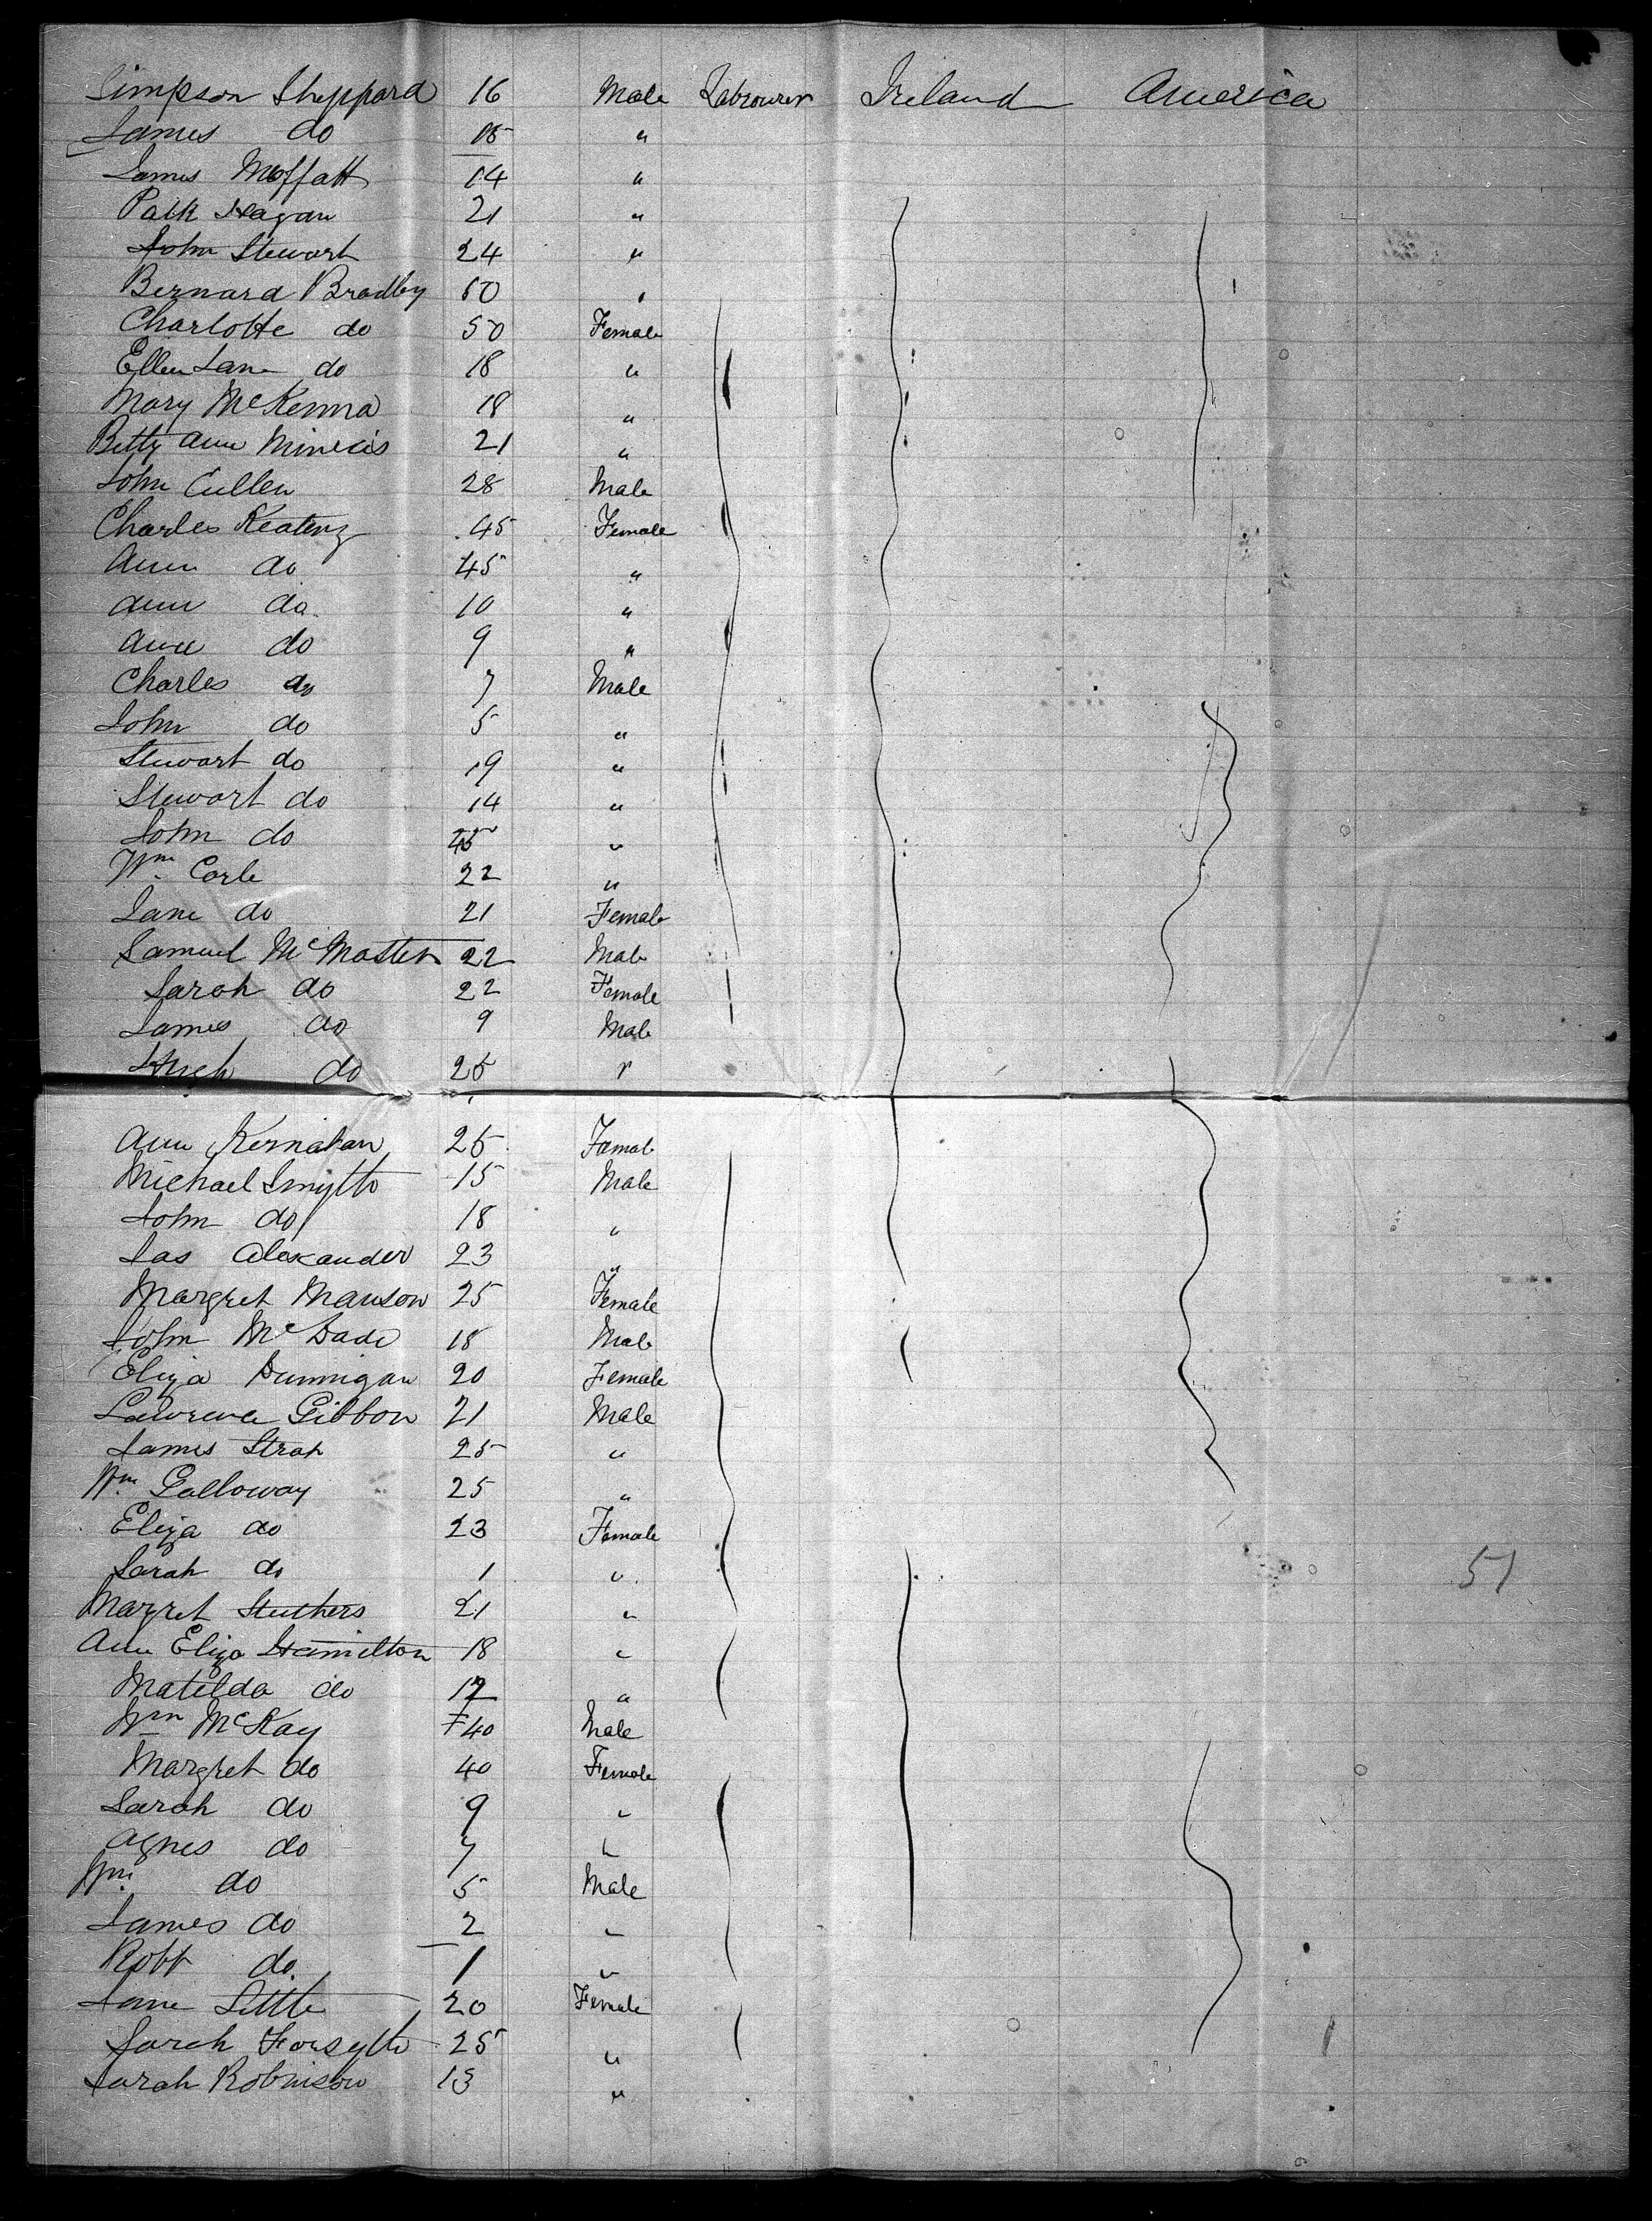 Simpson Sheppard 16 Male Labrourer Ireland America
James do 18 "
James Moffatt 14 "
Patk Hagan 21 "
John Stewart 24 "
Bernard Bradley 60 "
Charlotte do 50 Female
Ellen Jane do 18 "
Mary McKenna 18 "
Betty Ann 21 "
John Cullen 28 Male
Charles Keating 45 Female
Ann do 45 "
Ann do 10 "
do 9 "
Charles do 7 Male
John do 5 "
Stewart do 19 "
Stewart do 14 "
John do 45 "
Wm. Carle 22 "
Jane do 21 Female
Samuel McMaster 22 Male
Sarah do 22 Female
James do 9 Male
Hugh do 25 "
Ann Kernahan 25 Female
Michael Smyth 15 Male
John do 18 "
Jas Alexander 23 "
Margret Manson 25 Female
John McDade 18 Male
Eliza Dunnigan 20 Female
Lawrence Gibbon 21 Male
James Strah 25 "
Wm. Galloway 25 "
Eliza do 23 Female
Sarah do 1 "
51
Margret Stuthers 21 "
Ann Eliza Hamilton 18 "
Matilda do "
Wm McKay 40 Male
Margret do 40 Female
Sarah do 9 "
Agnes do 7 "
Wm. do 5 Male
James do 2 "
Robt do 1 "
Jane Little 20 Female
Sarah Forsyth 25 "
Sarah Robinson 13 "